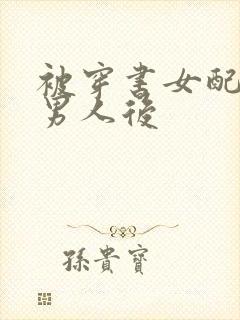 被穿書女配
男人後
孫貴寶